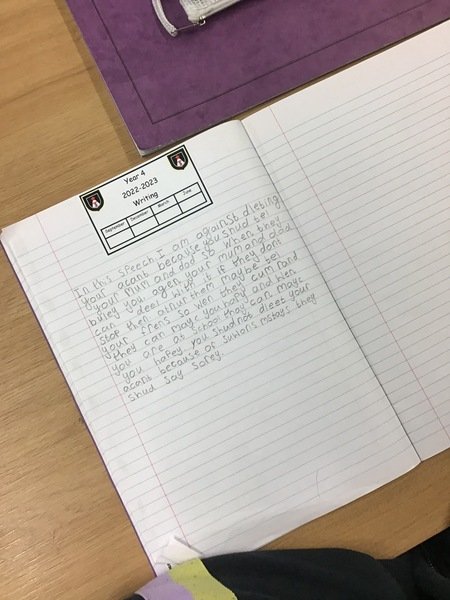 Year 4
2022-2023
Writing
September December March June
In this speech I am against dieleting
your acant because you shud tel
your mum and dad so when they
buley you agen your mum and dad
can deel with it if they dont
stop then arnur them maybe tel
your frens so wen they cum rand
they can mayc you happy and wen
you are as school they can mayc
you happy you shud not dieet your
acant because of suwons mstays they
shud say sorey.